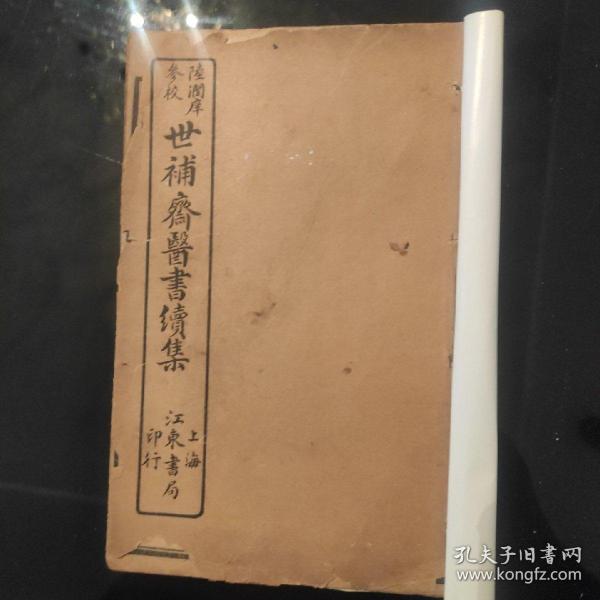 陸潤庠
參校
世補齋醫書續集
上海
江東書局
印行
孔夫子旧书网
www.kongfz.com